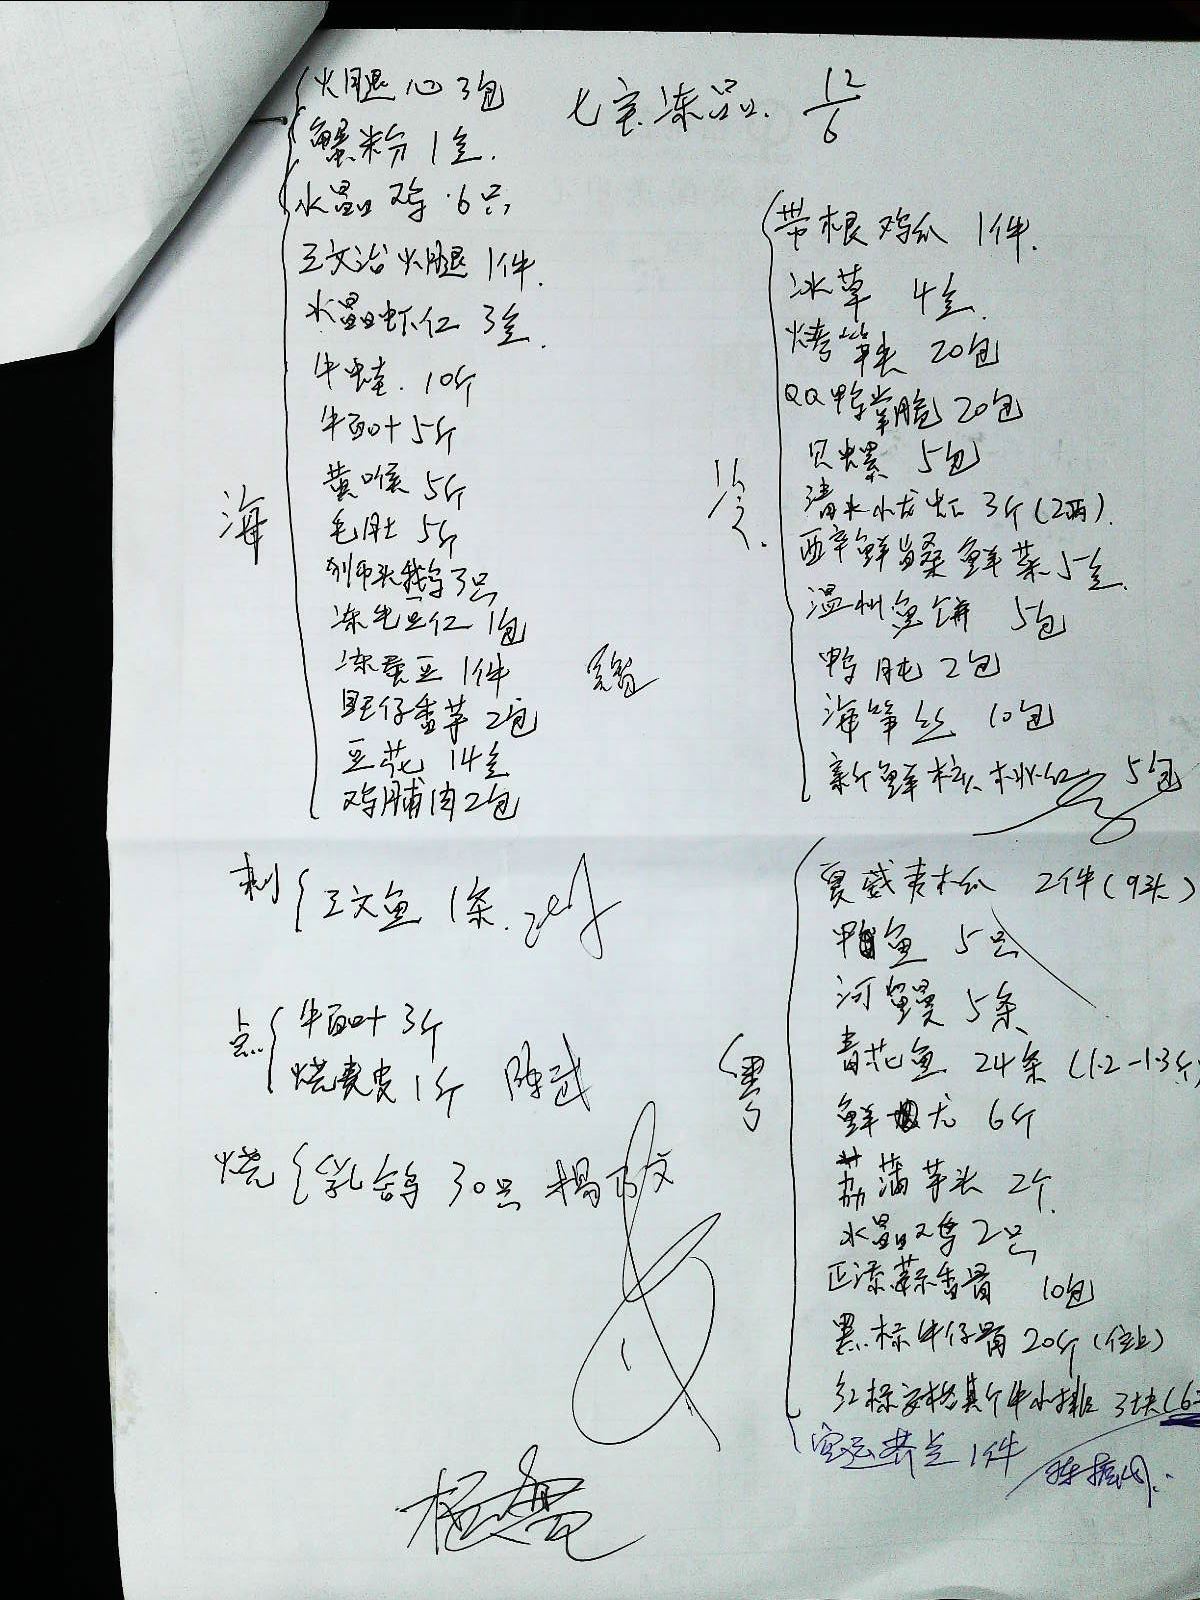 七宝冻品. 12/6
海
火腿心 3包
蟹粉 1盒.
水晶鸡 6只
三文治火腿 1件.
水晶虾仁 3盒.
牛蛙. 10斤
牛百叶 5斤
黄喉 5斤
毛肚 5斤
狮头鹅 3只
冻毛豆仁 1包
冻蚕豆 1件
香芋 2包
豆花 14盒
鸡脯肉 2包
冷.
带根鸡爪 1件.
冰草 4盒.
烤笋头 20包
QQ鸭掌脆 20包
贝螺 5包
清水小龙虾 3斤(2两).
鲜 5盒.
温州鱼饼 5包
鸭肫 2包
海笋丝 10包
新鲜核桃仁 5包
刺
三文鱼 1条.
点
牛百叶 3斤
烧麦皮 1斤 陈武
烧
乳鸽 30只 杨
粤
夏威夷木瓜 2件(9头)
鱼 5只
河鳗 5条
青花鱼 24条 (1.2-1.3斤)
鲜 6斤
荔蒲芋头 2个.
水晶鸡 2只
蒜香骨 10包
黑标牛仔骨 20斤 (位上)
红标安格其个牛小排 3块
1件